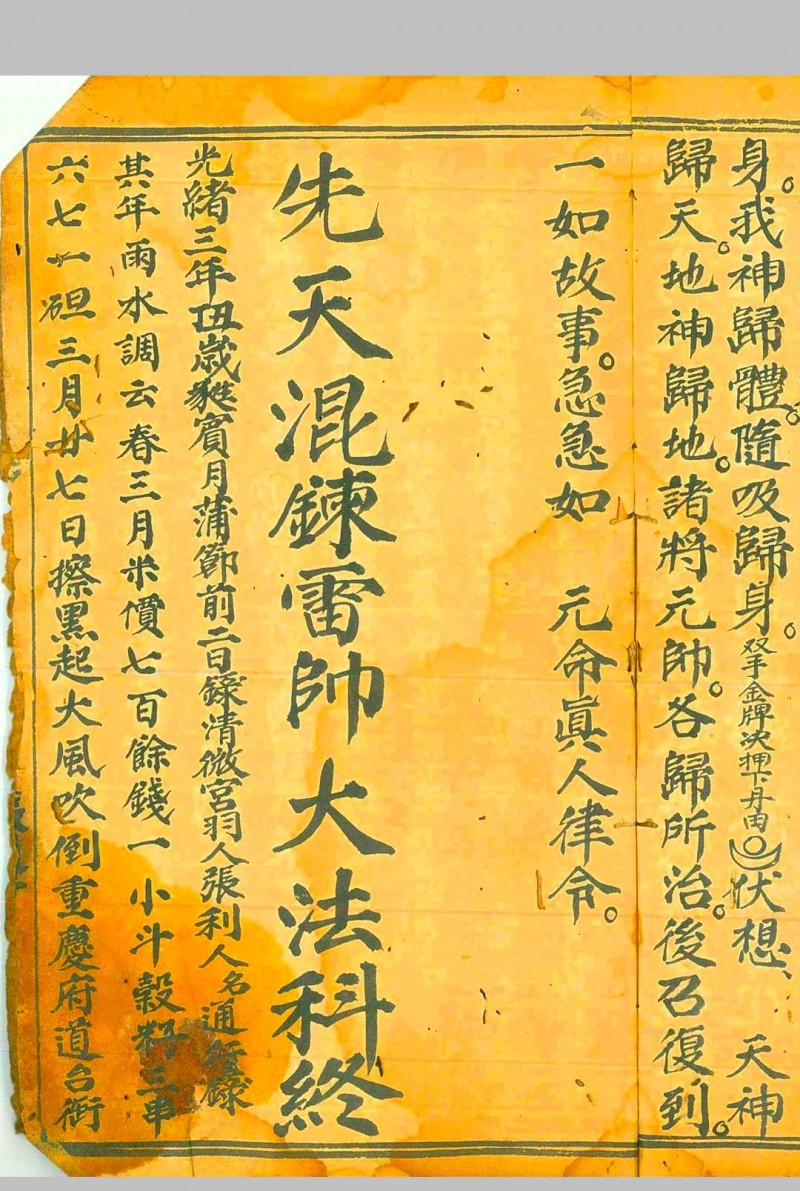 身。我神歸體。隨吸歸身。双手金牌决押下丹田伏想、天神
歸天。地神歸地。諸將元帥。各歸所治。後召復到。
一如故事。急急如 元命眞人律令。
先天混鍊雷帥大法科終
光緒三年丑歲蕤賓月蒲節前二日錄清微宮羽人張利人名通錄
其年雨水調云春三月米價七百餘錢一小斗穀籽三串
六七一硍三月廿七日擦黑起大風吹倒重慶府道台衙